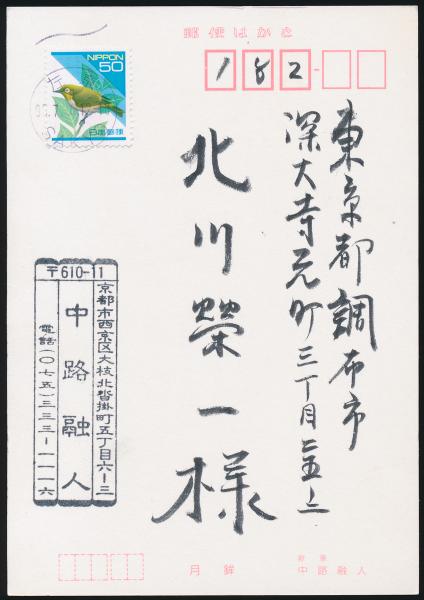 郵便はがき
182-
NIPPON
50
日本郵便
東京都調布市
深大寺元町三丁目二五ノ二
北川榮一様
〒610-11
京都市西京区大枝北沓掛町五丁目六-三
中路融人
電話(〇七五)三三三-一一一六
月鉾
中路融人